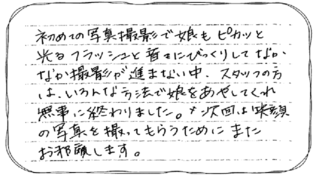 初めての写真撮影で娘もピカッと
光るフラッシュと音にびっくりしてなか
なか撮影が進まない中、スタッフの方
は、いろんな方法で娘をあやしてくれ
無事に終わりました。次回は笑顔
の写真を撮ってもらうためにまた
お邪魔します。